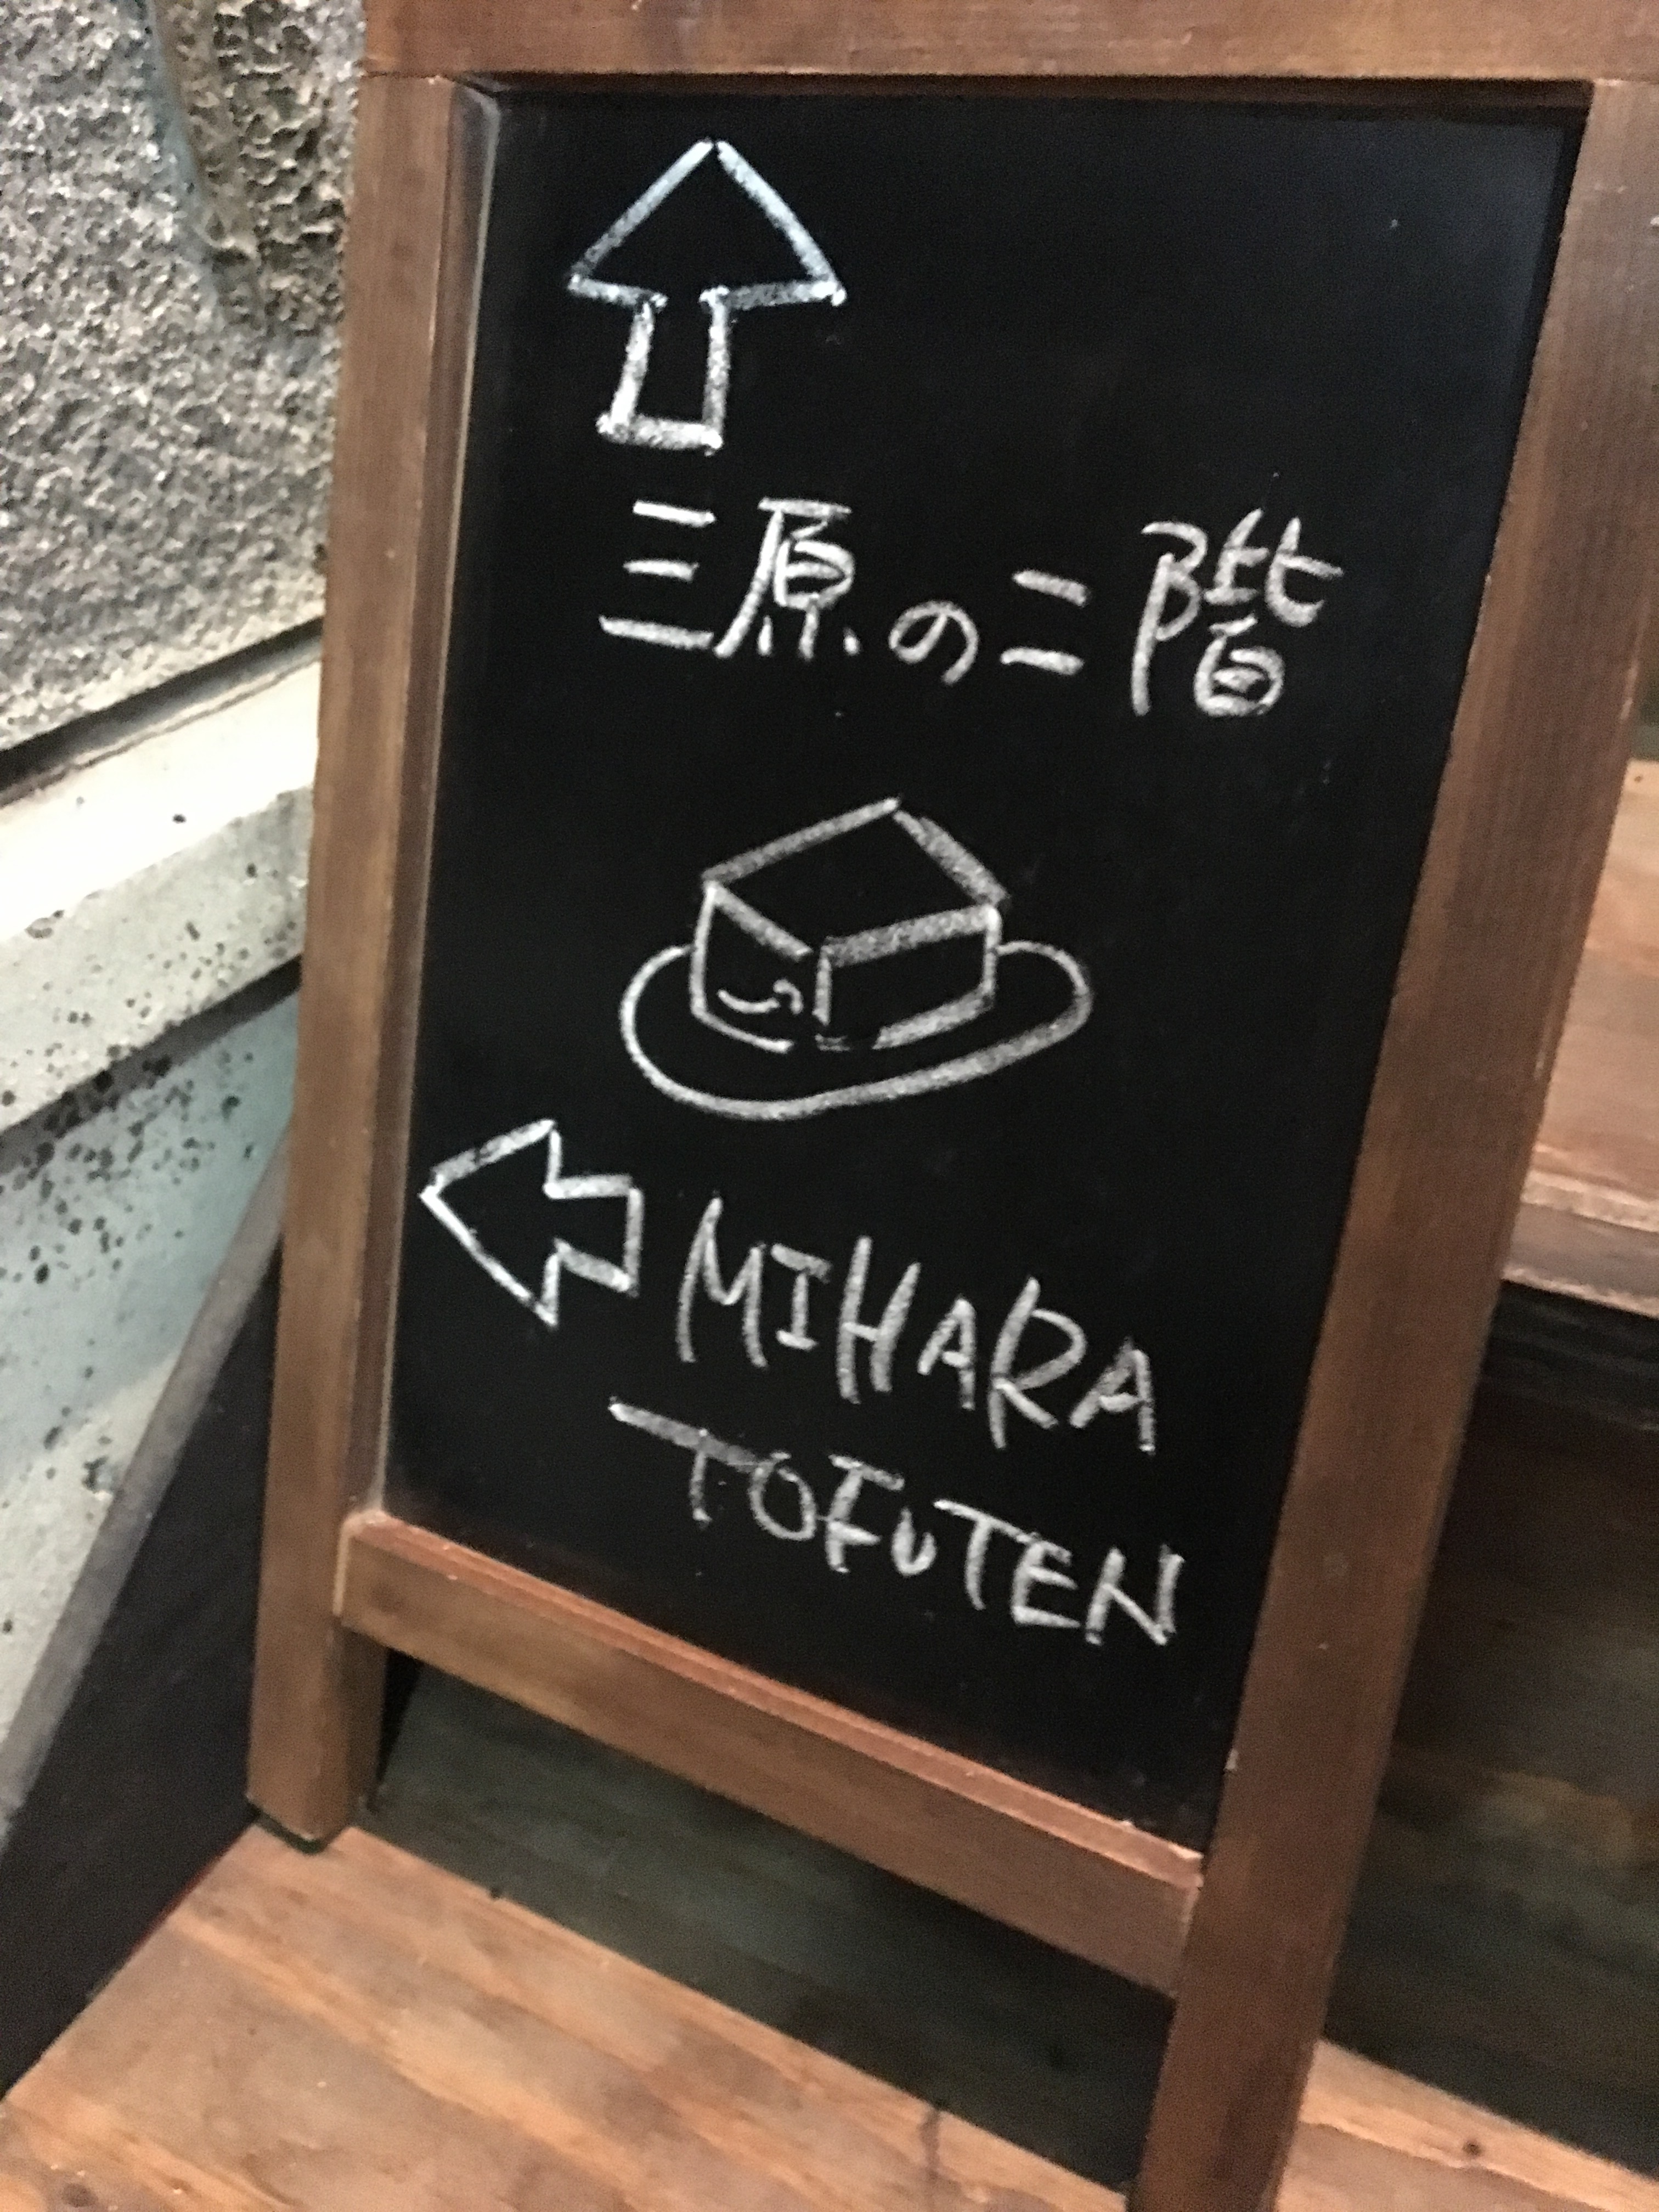 三原の二階
MIHARA
TOFUTEN